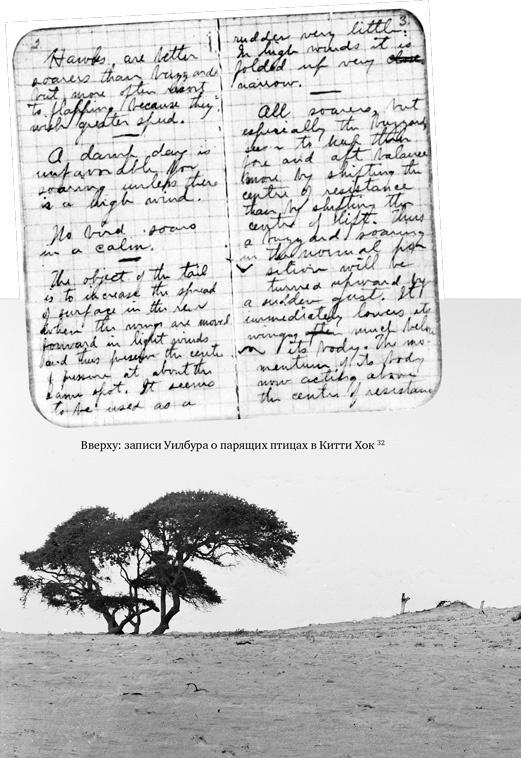 2
Hawks are better
soarers than buzzards
but more often resort
to flapping because they
wish greater speed.
A damp day is
unfavorable for
soaring unless there
is a high wind.
No bird soars
in a calm.
The object of the tail
is to increase the spread
of surface in the rear
when the wings are moved
forward in light winds
and thus preserve the centre
of pressure at about the
same spot. It seems
to be used as a
3
rudder very little.
In high winds it is
folded up very
narrow.
All soarers, but
especially the buzzard,
seem to keep their
fore and aft balance
more by shifting the
centre of resistance
than by shifting the
centre of lift. Thus
a buzzard soaring
in the normal po
sition will be
turned upward by
a sudden gust. It
immediately lowers its
wings much below
its body. The mo
mentum of its body
now acting above
the centre of resistance
Вверху: записи Уилбура о парящих птицах в Китти Хок 32